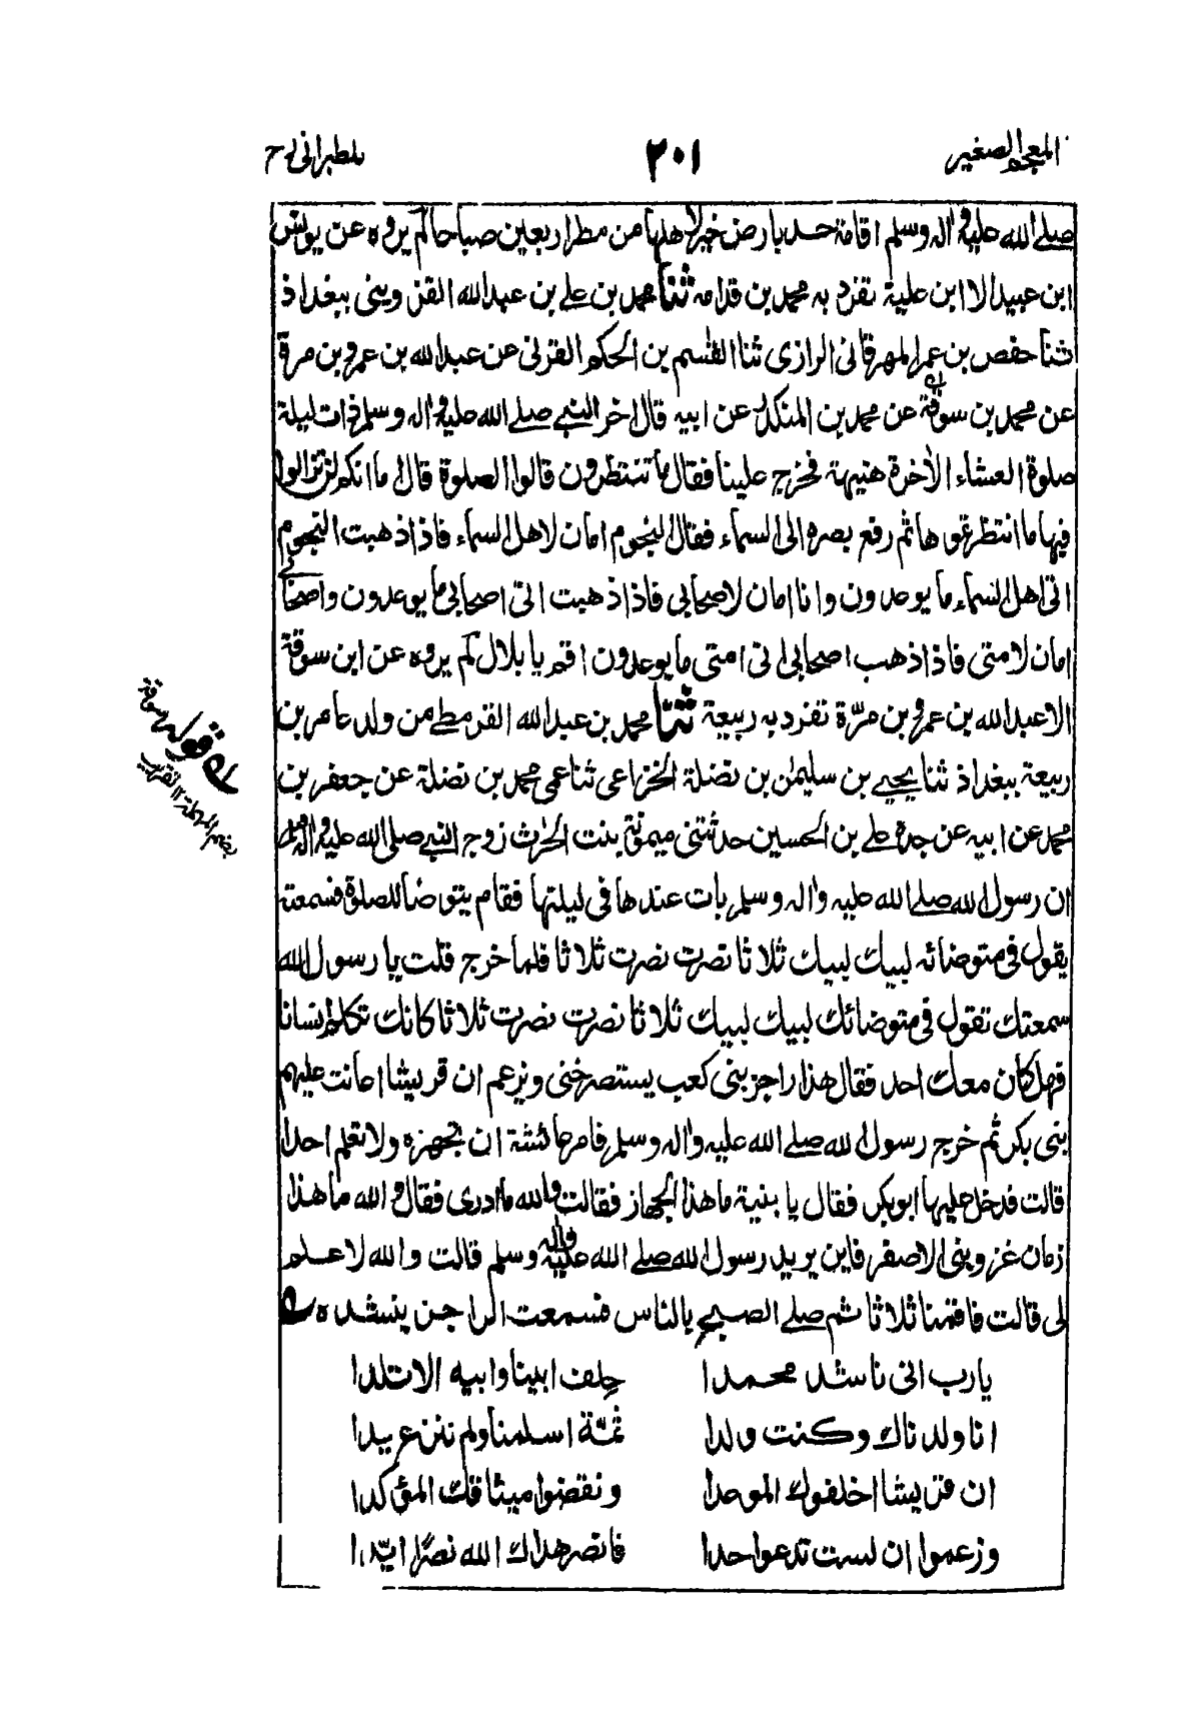 المعجم الصغير
٢٠١
للطبرانی رح
صلے الله عليه واله وسلم اقامة حد بارض خير لاهلها من مطر اربعين صباحا لم يروه عن يونس
ابن عبيد الا ابن علية تفرد به محمد بن قدامه ثنا محمد بن علے بن عبد الله القزوينی ببغداذ
ثنا حفص بن عمر المهرقانی الرازی ثنا القٰسم بن الحكم العرنی عن عبد الله بن عمرو بن مرة
عن محمد بن سوقة عن محمد بن المنكدر عن ابيه قال اخر النبے صلے الله عليه واله وسلم ذات ليلة
صلوة العشاء الاٰخرة هنيهة فخرج علينا فقال ما تنتظرون قالوا الصلوة قال اما انكم لن تزالوا
فيها ما انتظرتموها ثم رفع بصره الی السماء فقال النجوم امان لاهل السماء فاذا ذهبت النجوم
اتی اهل السماء ما يوعدون وانا امان لاصحابی فاذا ذهبت اتی اصحابی ما يوعدون واصحابی
امان لامتی فاذا ذهب اصحابی اتی امتی ما يوعدون اقم يا بلال لم يروه عن ابن سوقة
الا عبد الله بن عمرو بن مرّة تفرد به ربيعة ثنا محمد بن عبد الله القرمطے من ولد عامر بن
ربيعة ببغداذ ثنا يحيے بن سليمٰن بن نضلة الخزاعی ثنا عمی محمد بن نضلة عن جعفر بن
محمد عن ابيه عن جده علے بن الحسين حدثتنی ميمونة بنت الحٰرث زوج النبے صلی الله عليه واله وسلم
ان رسول الله صلے الله عليه واٰله وسلم بات عندها فی ليلتها فقام يتوضأ للصلوة فسمعته
يقول فی متوضائه لبيك لبيك ثلاثا نصرت نصرت ثلاثا فلما خرج قلت يا رسول الله
سمعتك تقول فی متوضائك لبيك لبيك ثلاثا نصرت نصرت ثلاثا كانك تكلم انسانا
فهل كان معك احد فقال هذا راجز بنی كعب يستصرخنی ويزعم ان قريشا اعانت عليهم
بنی بكر ثم خرج رسول الله صلے الله عليه واٰله وسلم فامر عائشة ان تجهزه ولا تعلم احدا
قالت فدخل عليها ابو بكر فقال يا بنية ما هذا الجهاز فقالت والله ما ادری فقال والله ما هذا
زمان غزو بنی الاصفر فاين يريد رسول الله صلے الله عليه واله وسلم قالت والله لا علم
لی قالت فاقمنا ثلاثا ثم صلے الصبح بالناس فسمعت الراجز ينشده
يا رب انی ناشد محمدا حلف ابينا وابيه الاتلدا
انا ولدناك وكنت ولدا ثمّة اسلمنا ولم ننزع يدا
ان قريشا اخلفوك الموعدا ونقضوا ميثاقك المؤكدا
وزعموا ان لست تدعو احدا فانصر هداك الله نصرًا ايّدا
له قوله سوقة
بضم المهملة ١٢ تقريب